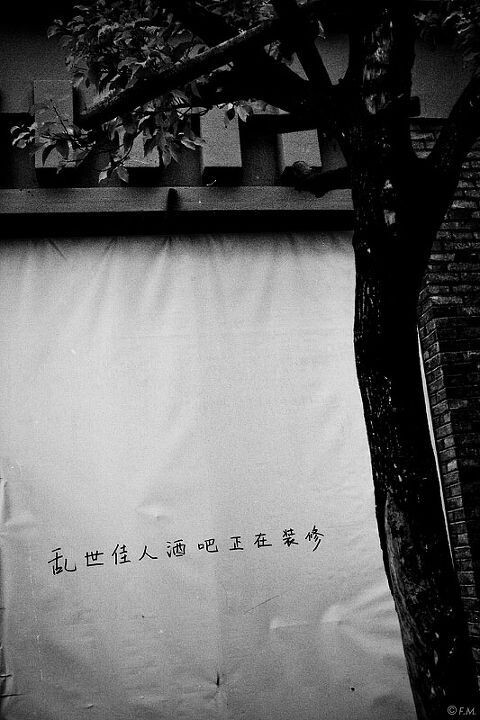 乱世佳人酒吧正在装修
©F.M.